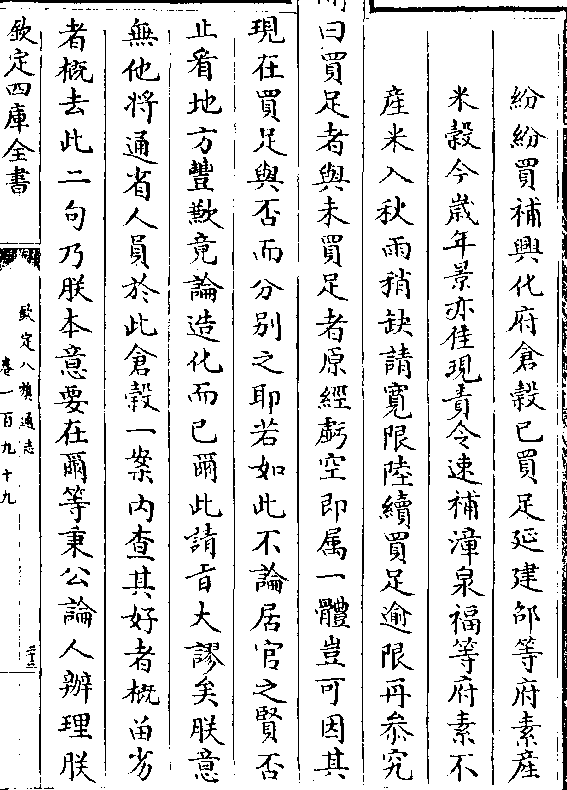 紛紛買補興化府倉穀已買足延建邵等府素産
米穀今嵗年景亦佳現責令速補漳泉福等府素不
産米入秋雨稍缺請寛限陸續買足逾限再叅究
曰買足者與未買足者原經虧空即属一體豈可因其
現在買足與否而分别之耶若如此不論居官之賢否
止看地方豐歉竟論造化而已爾此請旨大謬矣朕意
無他將通省人員於此倉穀一案内查其好者概留劣
者概去此二句乃朕本意要在爾等秉公論人辦理朕
欽定四庫全書
欽定八旗通志
卷一百九十九